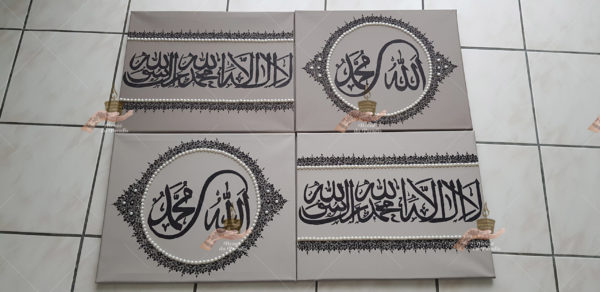 لا إله إلا الله محمد رسول الله
الله محمد
الله محمد
لا إله إلا الله محمد رسول الله